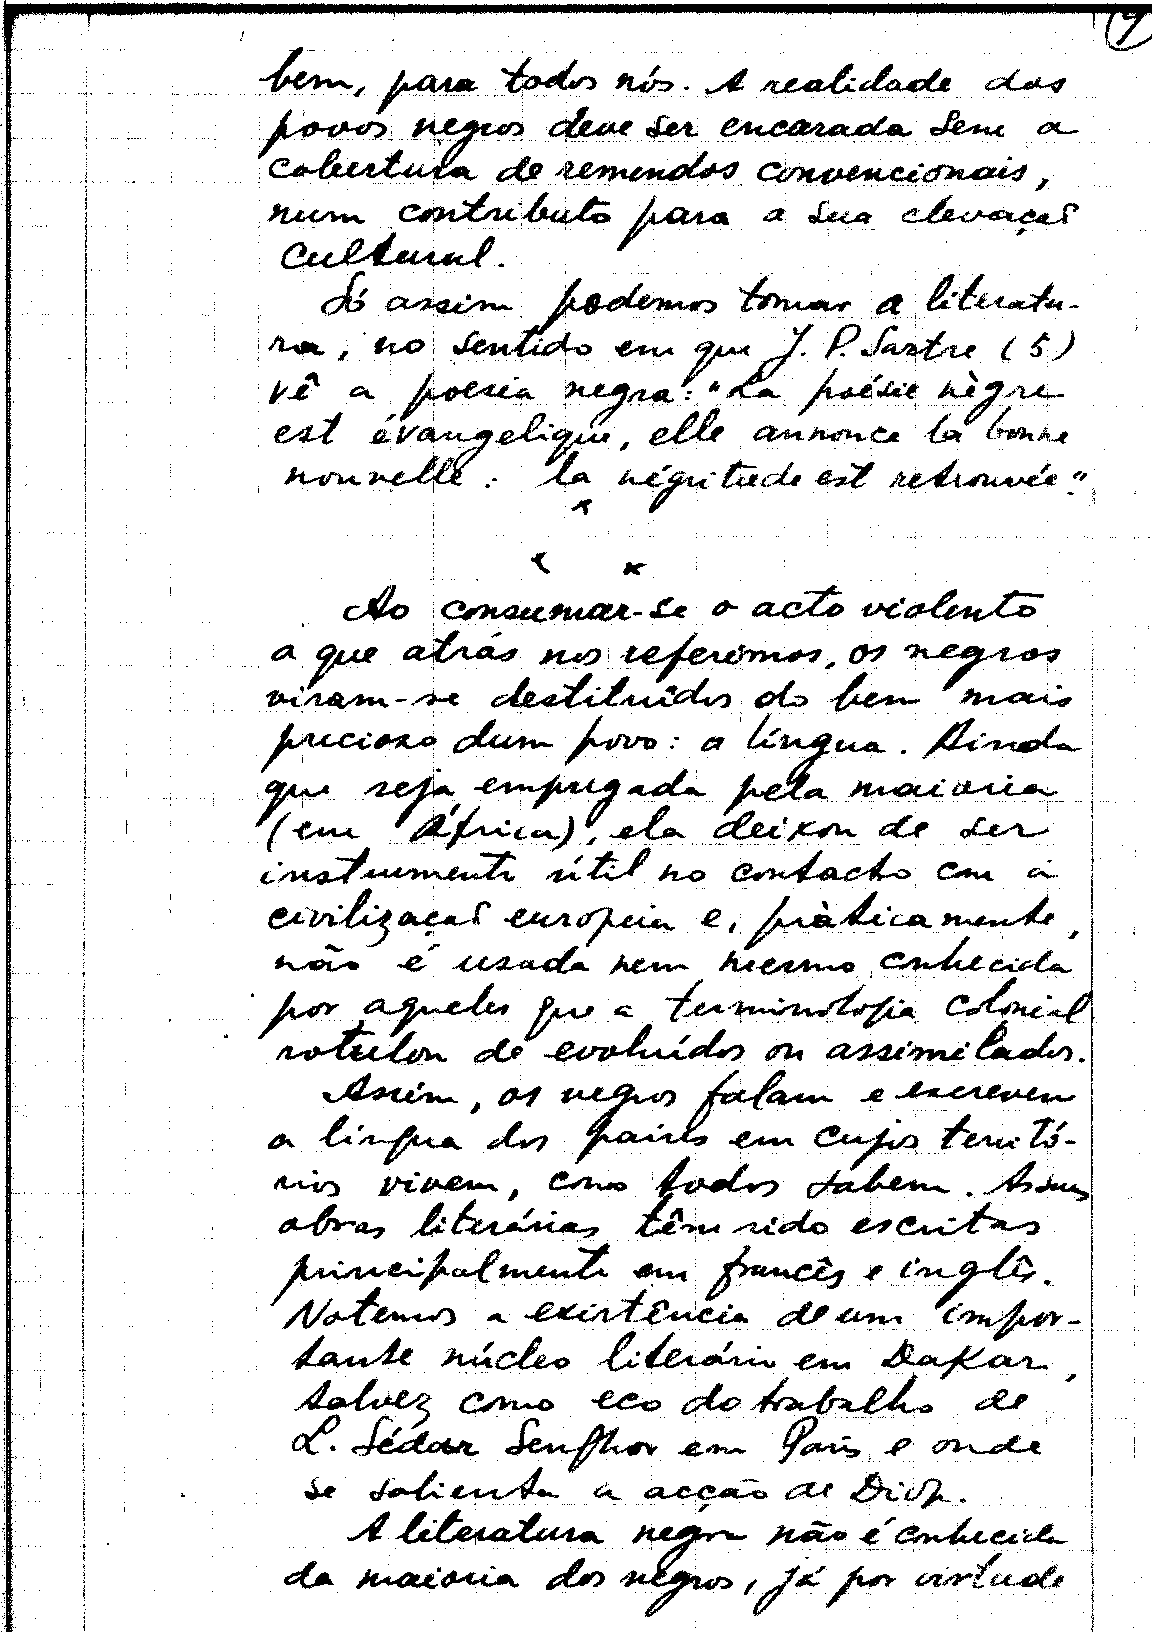 bem, para todos nós. A realidade dos
povos negros deve ser encarada sem a
cobertura de remendos convencionais,
num contributo para a sua elevação
cultural.
Só assim podemos tomar a literatu-
ra, no sentido em que J. P. Sartre (5)
vê a poesia negra: "La poésie nègre
est évangelique, elle annonce la bonne
nouvelle: la négritude est retrouvée".
*
* *
Ao consumar-se o acto violento
a que atrás nos referimos, os negros
viram-se destituídos do bem mais
precioso dum povo: a língua. Ainda
que seja empregada pela maioria
(em África), ela deixou de ser
instrumento útil no contacto com a
civilização europeia e, pràticamente,
não é usada nem mesmo conhecida
por aqueles que a terminologia colonial
rotulou de evoluídos ou assimilados.
Assim, os negros falam e escrevem
a língua dos países em cujos territó-
rios vivem, como todos sabem. As suas
obras literárias têm sido escritas
principalmente em francês e inglês.
Notemos a existência de um impor-
tante núcleo literário em Dakar,
talvez como eco do trabalho de
L. Sédar Senghor em Paris e onde
se salienta a acção de Diop.
A literatura negra não é conhecida
da maioria dos negros, já por virtude